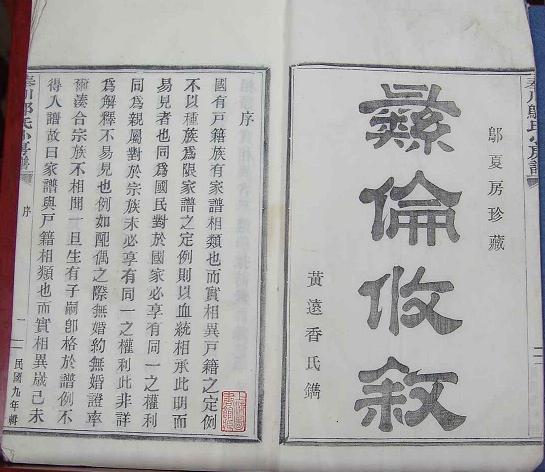 川鄔氏小房譜
鄔夏房珍藏
彝倫攸敘
黃遠香氏鐫
序
國有戶籍族有家譜相類也而實相異戶籍之定例
不以種族為限家譜之定例則以血統相承此明而
易見者也同為國民對於國家必享有同一之權利
同為親屬對於宗族未必享有同一之權利此非詳
為解釋不易見也例如配偶之際無婚約無婚證率
爾湊合宗族不相聞一旦生有子嗣卽格於譜例不
得入譜故曰家譜與戶籍相類也而實相異歲己未
川鄔氏小房譜
序
一
民國九年輯